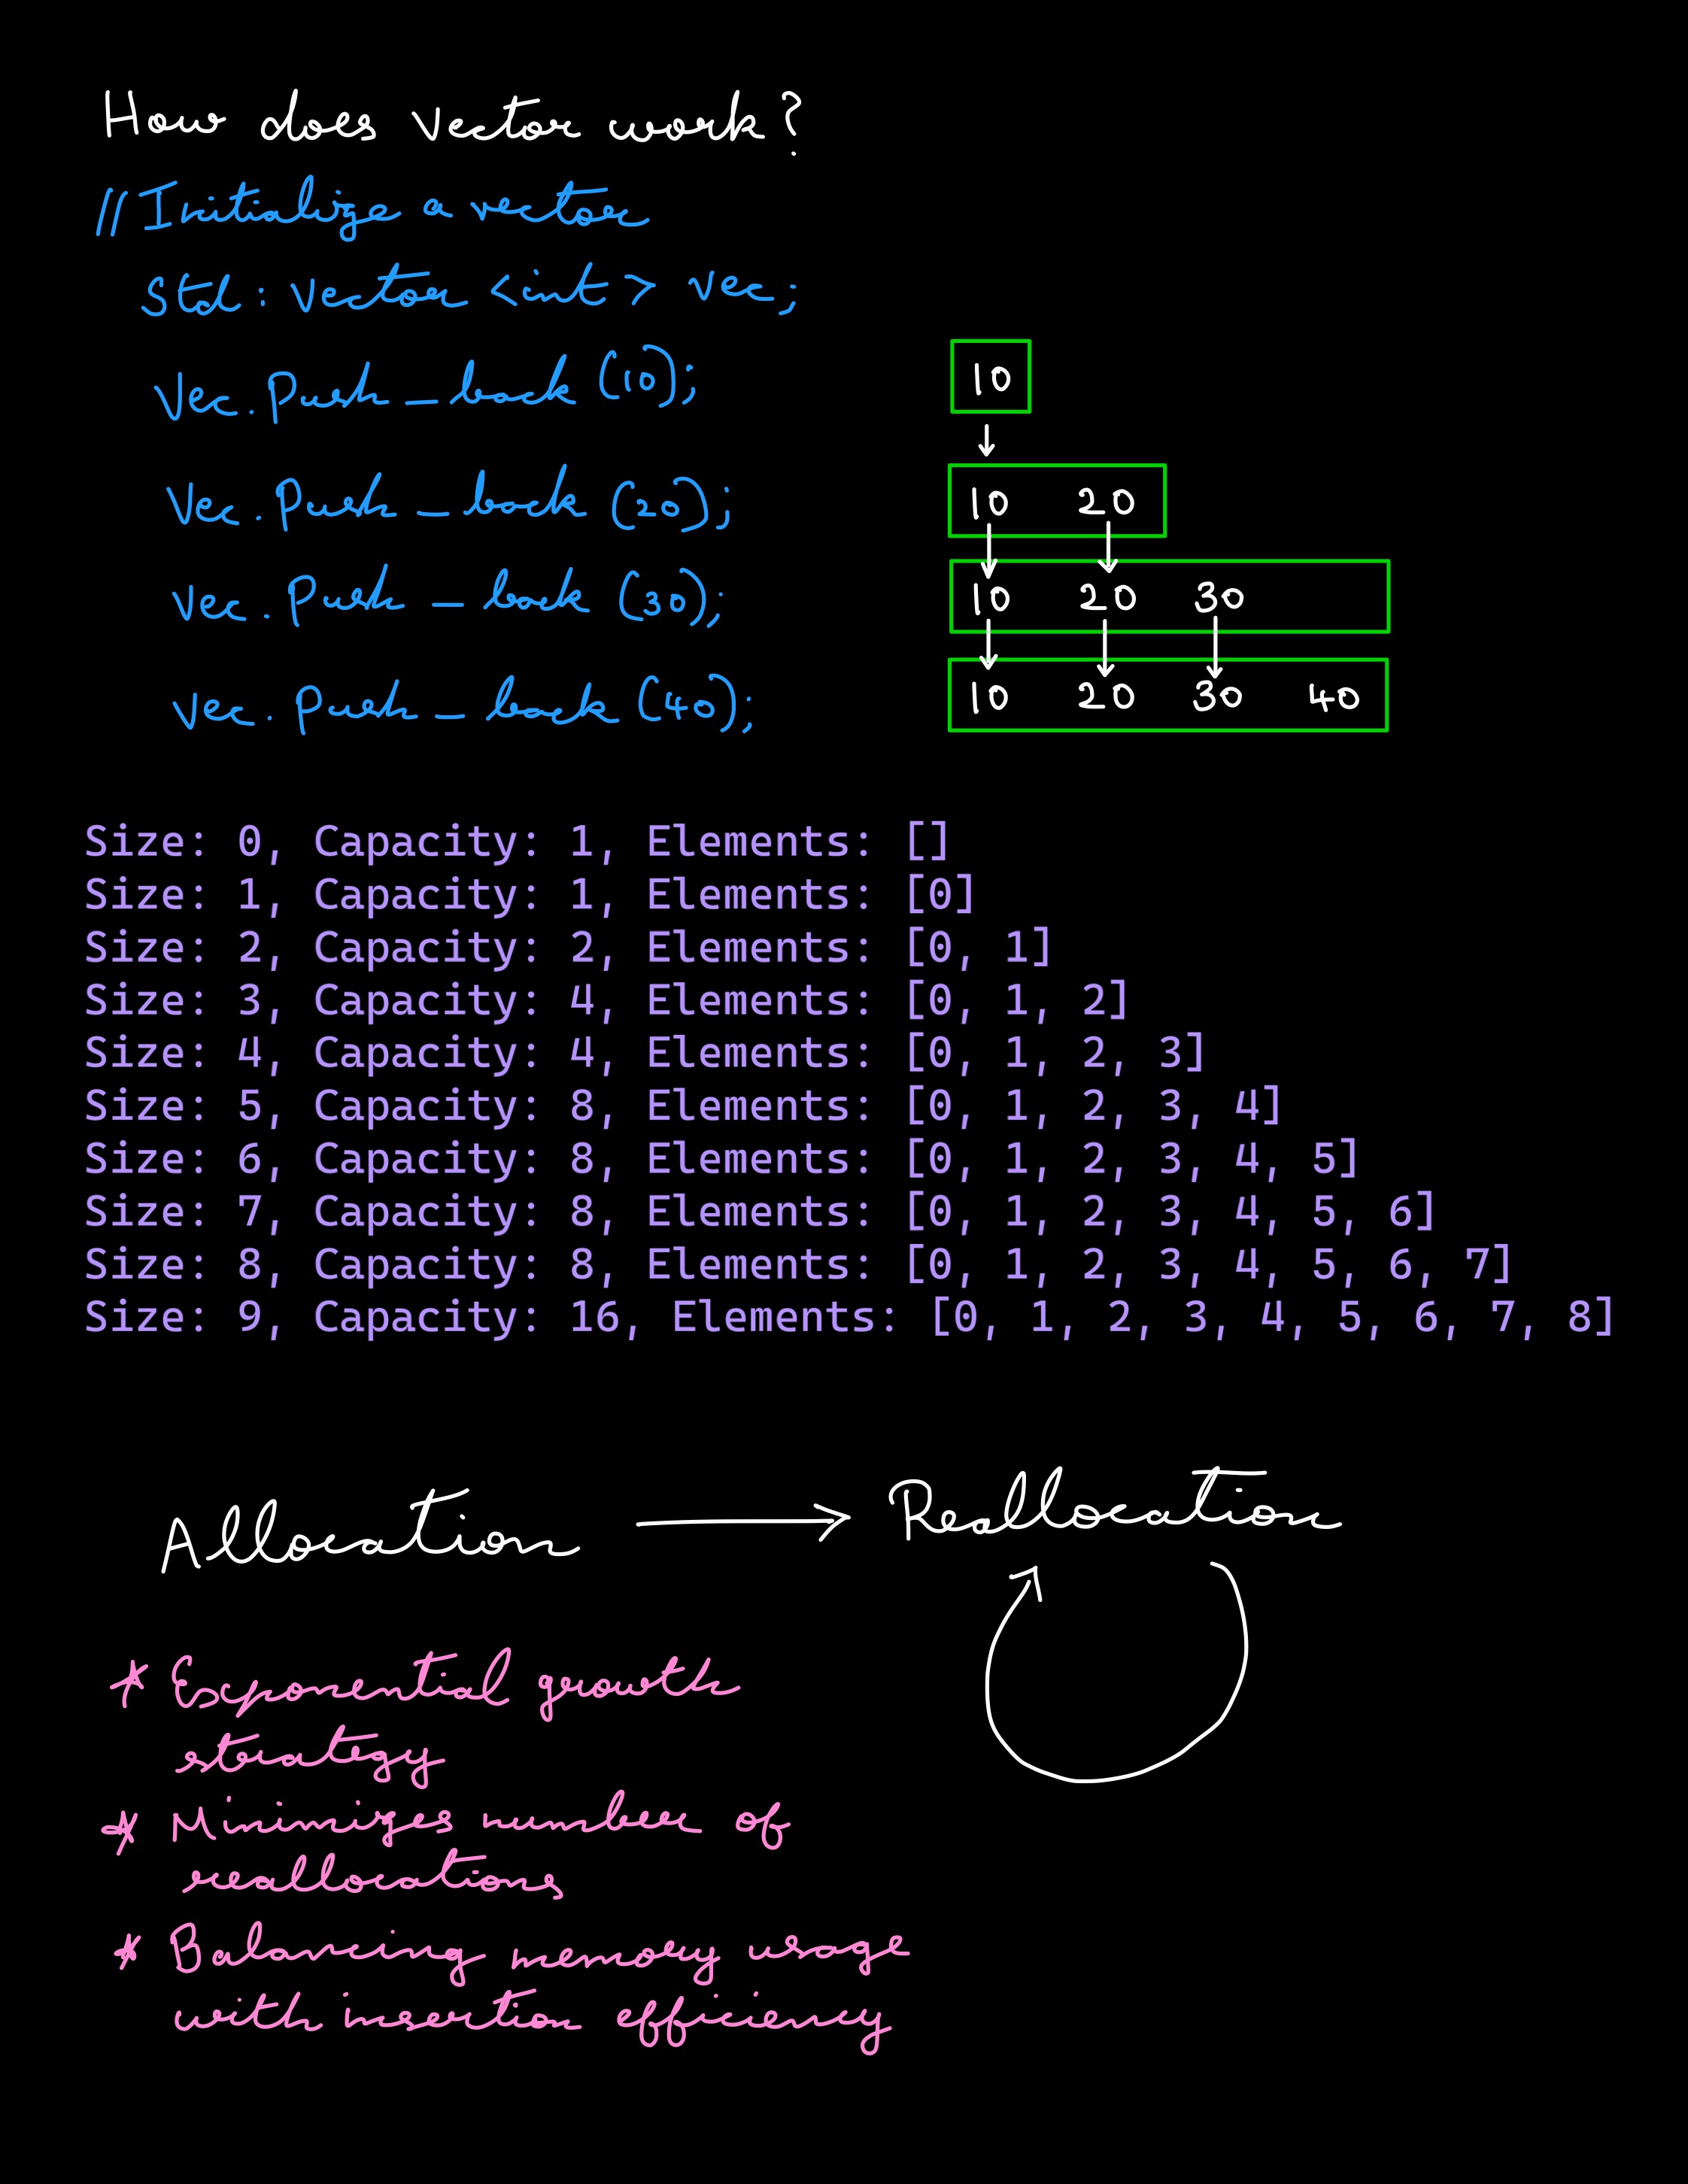 How does vector work?
// Initialize a vector
Std: vector <int> vec;
Vec. Push_back (10);
10
Vec. Push_back (20);
10 20
Vec. Push_back (30);
10 20 30
Vec. Push_back (40);
10 20 30 40
Size: 0, Capacity: 1, Elements: []
Size: 1, Capacity: 1, Elements: [0]
Size: 2, Capacity: 2, Elements: [0, 1]
Size: 3, Capacity: 4, Elements: [0, 1, 2]
Size: 4, Capacity: 4, Elements: [0, 1, 2, 3]
Size: 5, Capacity: 8, Elements: [0, 1, 2, 3, 4]
Size: 6, Capacity: 8, Elements: [0, 1, 2, 3, 4, 5]
Size: 7, Capacity: 8, Elements: [0, 1, 2, 3, 4, 5, 6]
Size: 8, Capacity: 8, Elements: [0, 1, 2, 3, 4, 5, 6, 7]
Size: 9, Capacity: 16, Elements: [0, 1, 2, 3, 4, 5, 6, 7, 8]
Allocation → Reallocation
* Exponential growth
strategy
* Minimizes number of
reallocations
* Balancing memory usage
with insertion efficiency